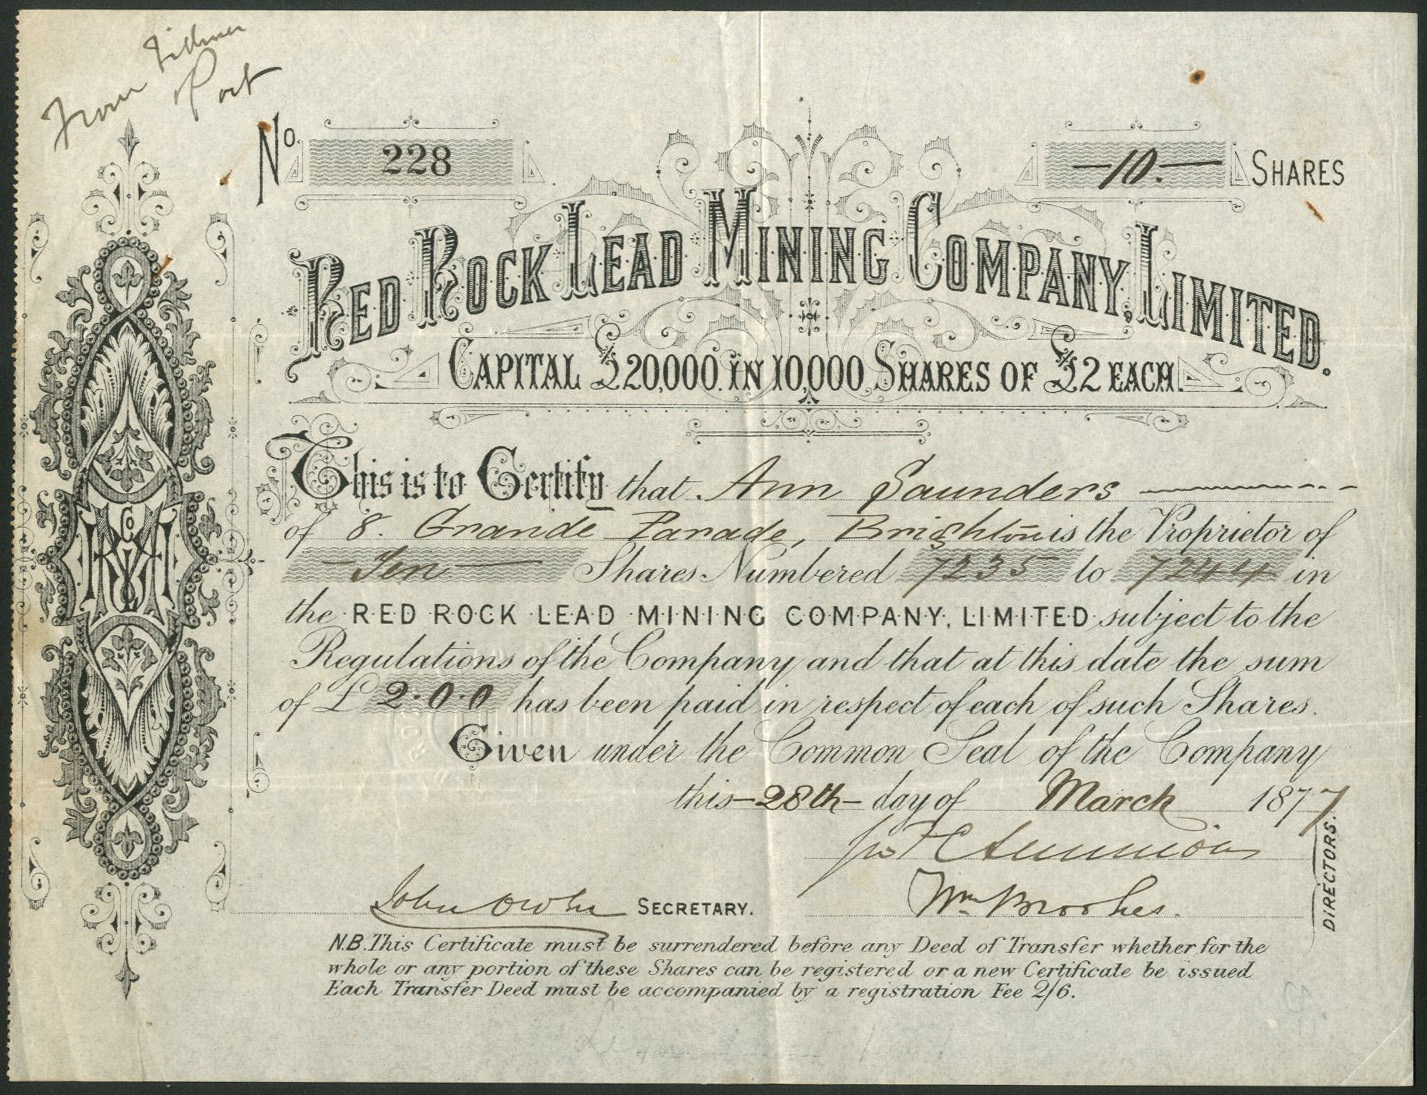 From
Port
No. 228
10. SHARES
RED ROCK LEAD MINING COMPANY, LIMITED.
CAPITAL £20,000. IN 10,000 SHARES OF £2 EACH.
This is to Certify that Ann Saunders
of 8. Grande Parade, Brighton is the Proprietor of
Ten Shares Numbered 7235 to 7244 in
the RED ROCK LEAD MINING COMPANY, LIMITED subject to the
Regulations of the Company and that at this date the sum
of £ 2·0·0 has been paid in respect of each of such Shares.
Given under the Common Seal of the Company
this 28th day of March 1877
Wm Brookes.
DIRECTORS.
John SECRETARY.
N.B. This Certificate must be surrendered before any Deed of Transfer whether for the
whole or any portion of these Shares can be registered or a new Certificate be issued
Each Transfer Deed must be accompanied by a registration Fee 2/6.